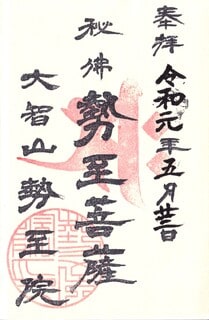 奉拝 令和元年五月廿三日
秘佛 勢至菩薩
大智山 勢至院